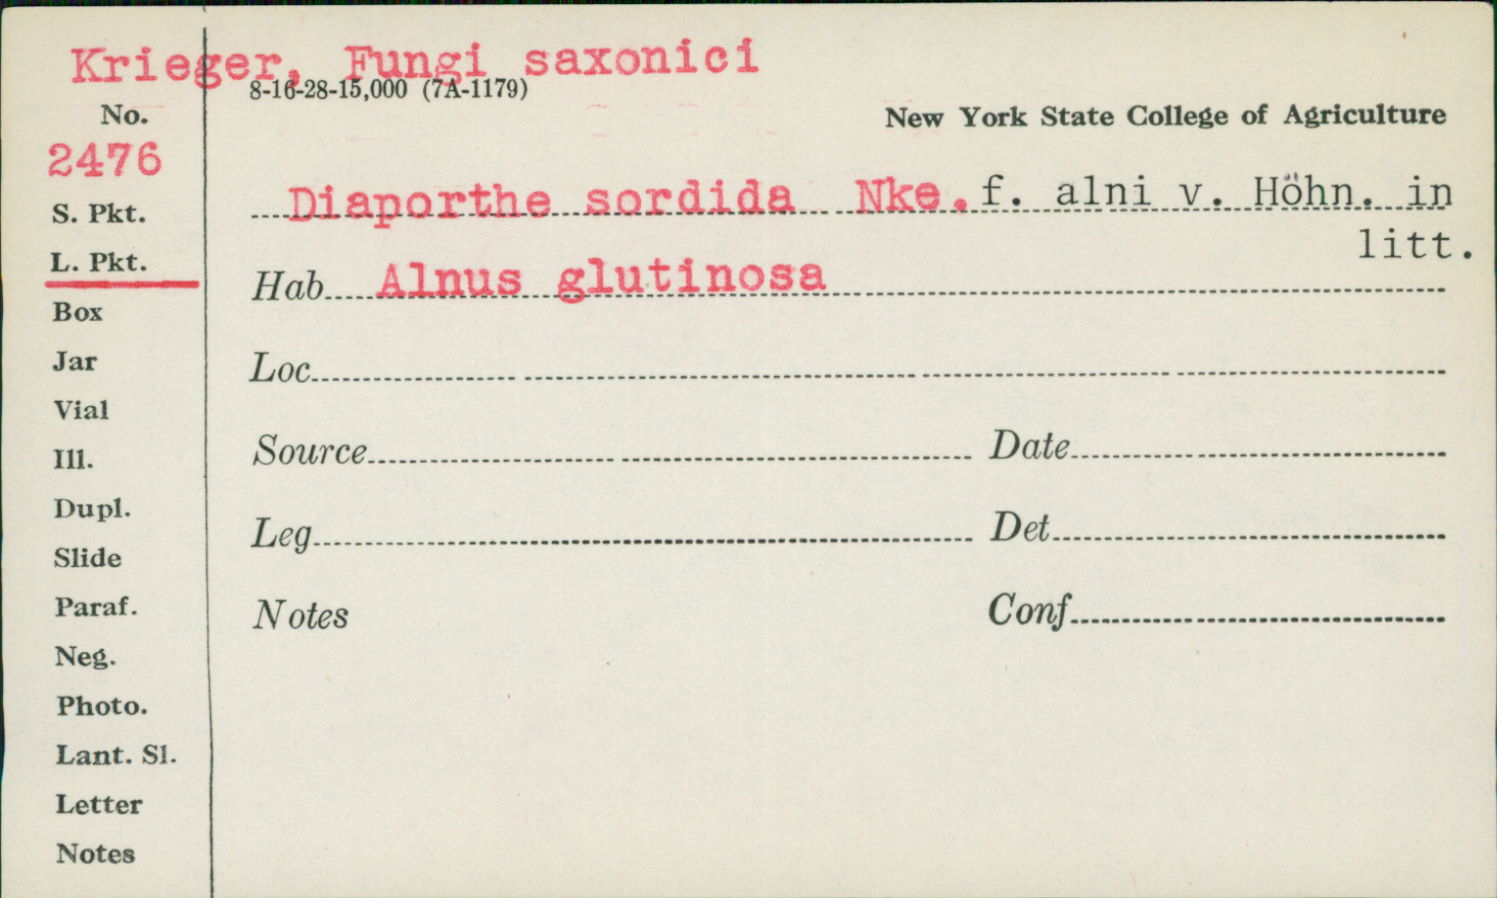 Krieger, Fungi saxonici
8-16-28-15,000 (7A-1179)
No.
New York State College of Agriculture
2476
Diaporthe sordida Nke. f. alni v. Höhn. in
litt.
S. Pkt.
L. Pkt.
Hab Alnus glutinosa
Box
Jar
Loc
Vial
Ill.
Source Date
Dupl.
Leg Det
Slide
Paraf.
Notes Conf
Neg.
Photo.
Lant. Sl.
Letter
Notes